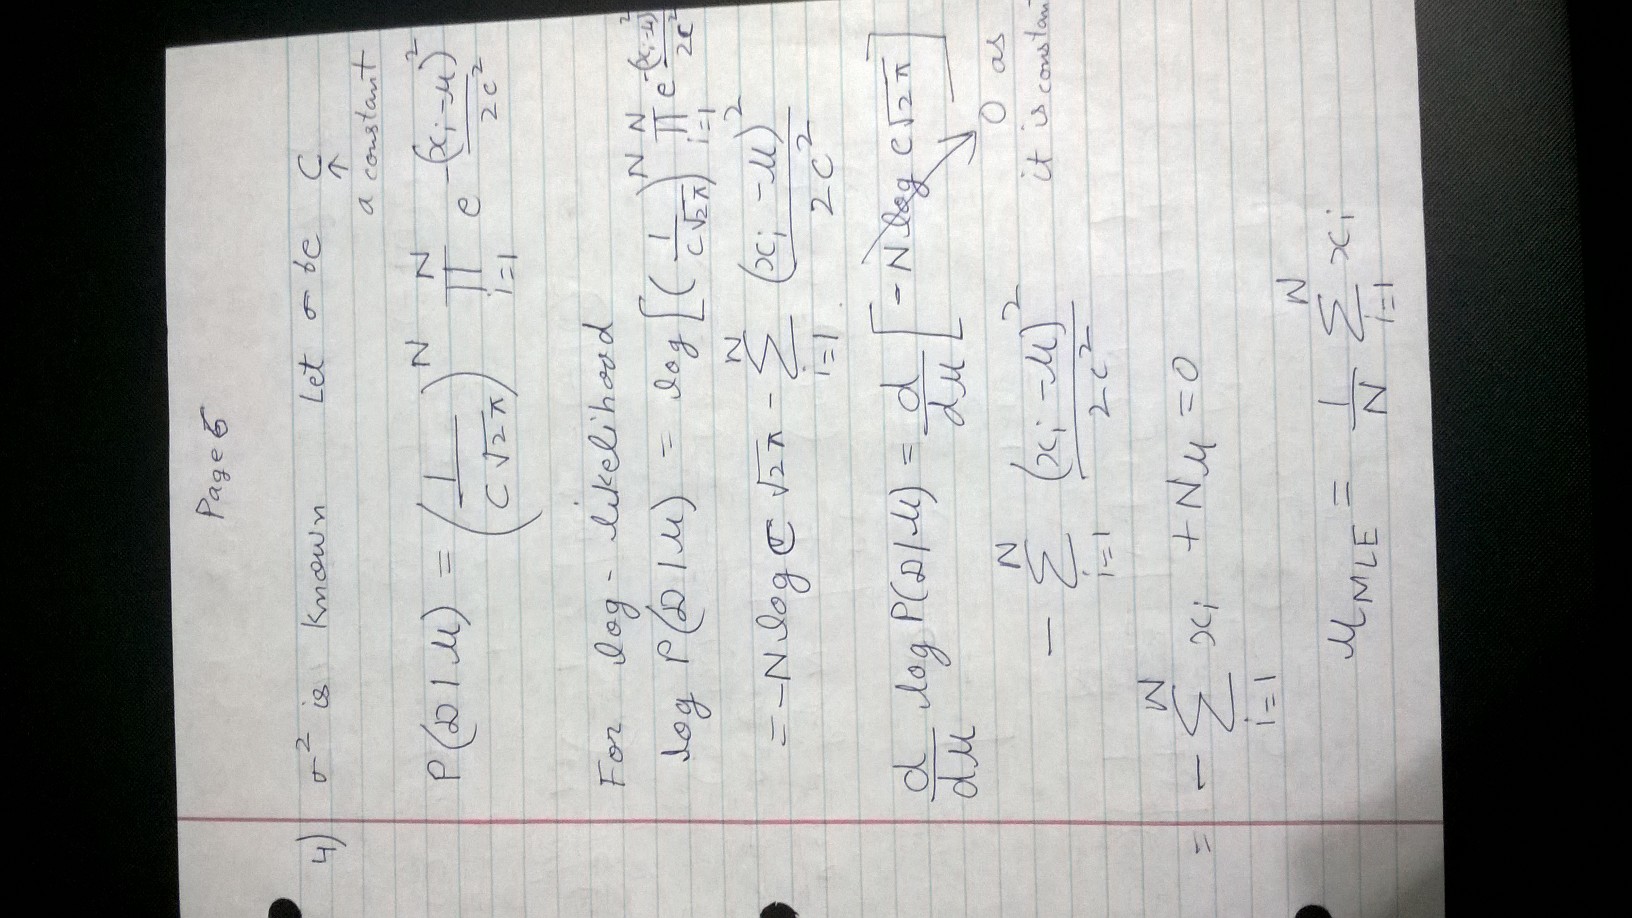 Page 6
4) σ² is known Let σ be C
↑
a constant
P(D|μ) = (1/(C√2π))^N ∏_{i=1}^N e^{-(x_i-μ)²/2c²}
For log-likelihood
log P(D|μ) = log[(1/(C√2π))^N ∏_{i=1}^N e^{-(x_i-μ)²/2c²}
= -N log C √2π - ∑_{i=1}^N (x_i-μ)²/2c²
d/dμ log P(D|μ) = d/dμ [-N log C√2π]
0 as
it is constan
- ∑_{i=1}^N (x_i-μ)²/2c²
= - ∑_{i=1}^N x_i + Nμ = 0
μ_MLE = 1/N ∑_{i=1}^N x_i